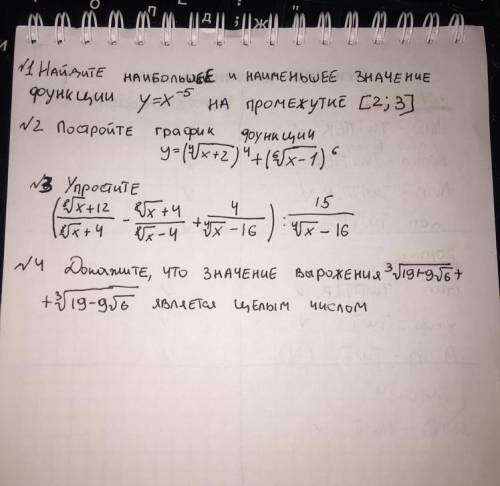 №1 Найдите наибольшее и наименьшее значение
функции y=x⁻⁵ на промежутке [2;3]
№2 Постройте график функции
y=(⁴√x+2)⁴+(⁶√x-1)⁶
№3 Упростите
(⁸√x+12/⁸√x+4 - ⁸√x+4/⁸√x-4 + 4/⁴√x-16) : 15/⁴√x-16
№4 Докажите, что значение выражения ³√19+9√6 +
+³√19-9√6 является целым числом